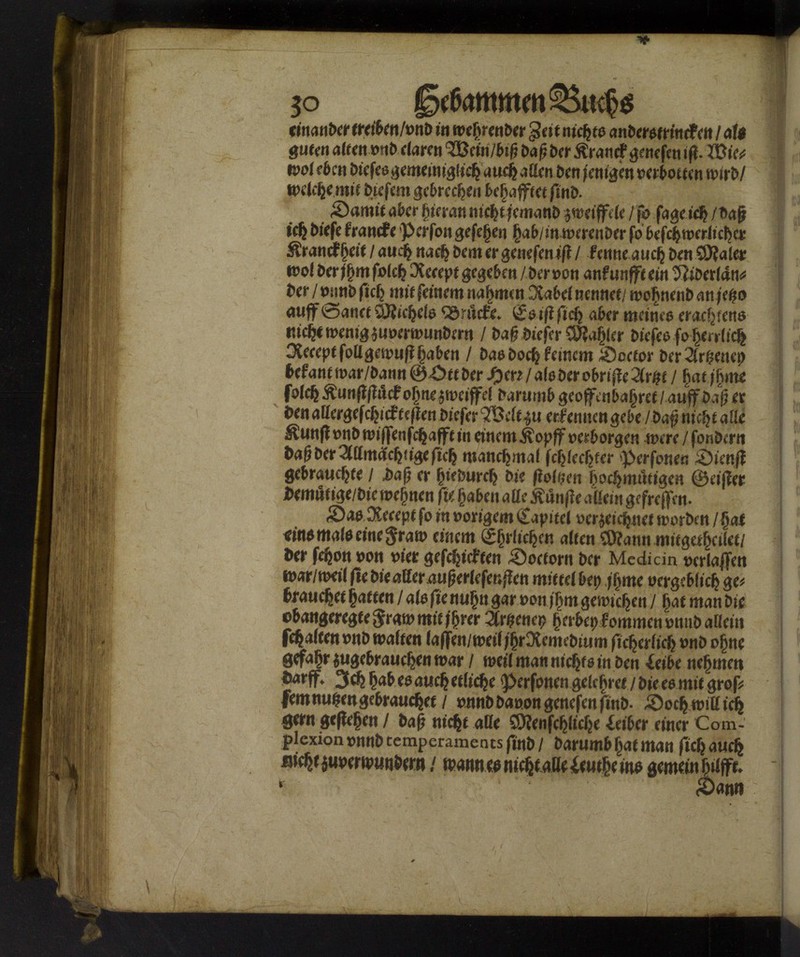 30 Hebammen Buchs
einander treiben/vnd in wehrender Zeit nichts anders trincken / als
guten alten vnd claren Wein/biß daß der Kranck genesen ist. Wie-
wol eben dieses gemeiniglich auch allen denjenigen verbotten wird/
welche mit diesem gebrechen behafftet sind.
Damit aber hieran nicht jemand zweiffele / so sage ich / daß
ich diese krancke Person gesehen hab/in werender so beschwerlicher
Kranckheit / auch nach dem er genesen ist / kenne auch den Maler
wol der jhm solch Recept gegeben / der von ankunfft ein Niderlän-
der / vnnd sich mit seinem nahmen Rabel nennet/ wohnend an jetzo
auff Sanct Michels Brücke. Es ist sich aber meines erachtens
nicht wenig zuverwundern / daß dieser Mahler dieses so herrlich
Recept soll gewust haben / das doch keinem Doctor der Artzeney
bekant war/dann GOtt der Herr / als der obriste Artzt / hat jhme
solch Kunststück ohne zweiffel darumb geoffenbahret / auff daß er
den allergeschicktesten dieser Welt zu erkennen gebe / daß nicht alle
Kunst vnd wissenschafft in einem Kopff verborgen were / sondern
daß der Allmächtige sich manchmal schlechter Personen Dienst
gebrauchte / daß er hiedurch die stoltzen hochmütigen Geister
demütige/die wehnen sie haben alle Künste allein gefressen.
Das Recept so in vorigem Capitel verzeichnet worden / hat
eins mals eine Fraw einem Ehrlichen alten Mann mitgetheilet/
der schon von vier geschickten Doctorn der Medicin verlassen
war/weil sie die aller außerlesensten mittel bey jhme vergeblich ge-
brauchet hatten / als sie nuhn gar von jhm gewichen / hat man die
obangeregte Fraw mit jhrer Artzeney herbey kommen vnnd allein
schalten vnd walten lassen/weil jhr Remedium sicherlich vnd ohne
gefahr zugebrauchen war / weil man nichts in den Leibe nehmen
darff. Ich hab es auch etliche Personen gelehret / die es mit gros-
sem nutzen gebrauchet / vnnd davon genesen sind. Doch will ich
gern gestehen / daß nicht alle Menschliche Leiber einer Com-
plexion vnnd temperaments sind / darumb hat man sich auch
nicht zuverwundern / wann es nicht alle Leuthe ins gemein hilfft.
Dann